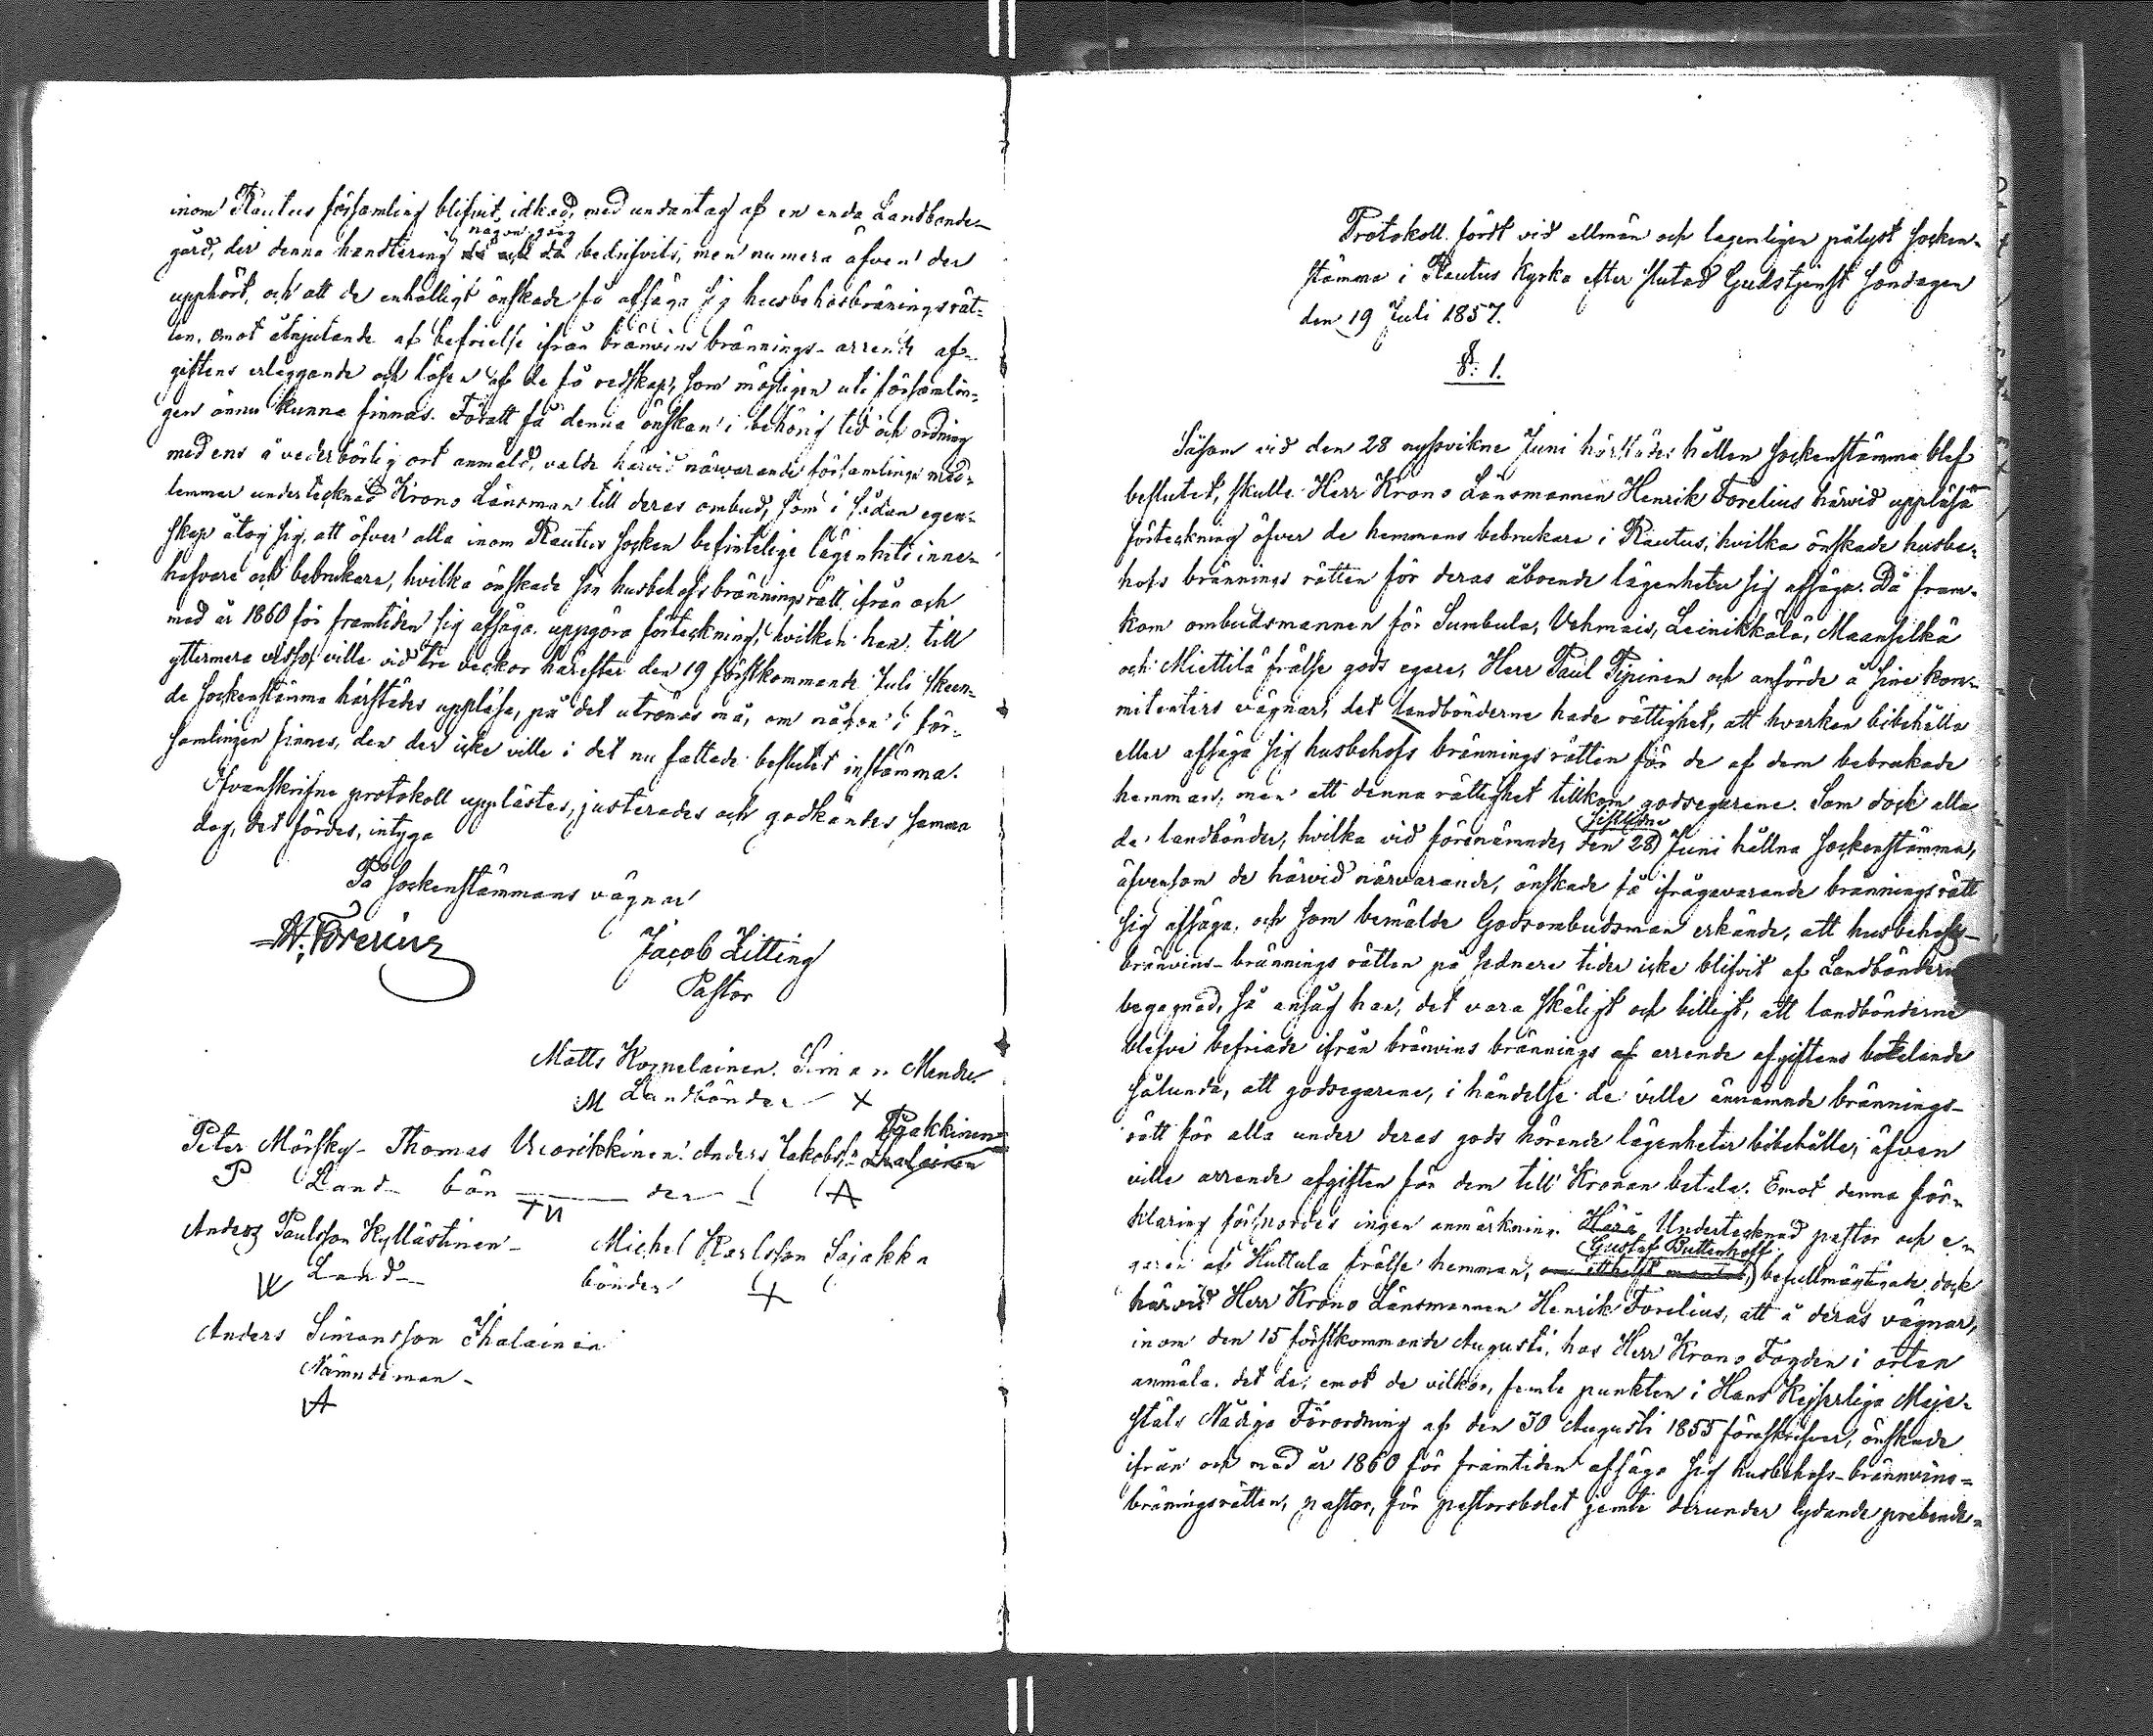 inom Rautus församling blifvit idkad, med undantag af en enda Landbonde-
någon gång
gård, der denna handtering då och då bedrifvits, men numera äfven der
upphört, och att de enhälligt önskade få afsäga sig husbehofsbränings rät-
ten, emot åtnjutande af befrielse ifrån bränvins brännings-arrende af-
giftens erläggande och lösen af de få redskap, som möjligen uti försam̄lin-
gen ännu kunna finnas. Föratt få denna önskan i behörig tid och ordning
med ens å vederbörlig ort anmäld, valde härvid närvarande församlings med-
lemmar undertecknad Krono Länsman till deras ombud, som i sådan egen-
skap åtog sig, att öfver alla inom Rautus socken befintelige lägenhets inne-
hafvare och bebrukare, hvilka önskade sin husbehofs bränningsrätt ifrån och
med år 1860 för framtiden sig afsäga, uppgöra förteckning, hvilken han till
yttermera visso ville vid tre veckor härefter den 19 förstkommande Juli skeen-
de sockenstämma härstädes uppläsa, på det utrönas må, om någon i för-
samlingen finnes, den der icke ville i det nu fattade beslutet instämma.
Ofvanskrifne protokoll upplästes, justerades och godkändes samma
dag, det fördes, intyga
På sockenstämmans vägnar
H. Forelius
Jacob Zitting
Pastor
Matts Kopnelainen. Simon Mendu
M Landbönder X
Paakkinen
Peter Mörsky- Thomas Uuorikkinen. Anders Jakobss: Ihalainen
P Land- bön der A
TU
Anders Paulsson Kyllästinen- Michel Karlsson Sajakka
Land- bönder
Anders Simonsson Ihalainen
Nämndeman-
A
Protokoll fördt vid allmän och lagenligen pålyst socken-
stämma i Rautus Kyrka efter slutad Gudstjenst söndagen
den 19 Juli 1857.
§: 1.
Såsom vid den 28 nyssvikne Juni härstädes hållen sockenstämma blef
beslutet, skulle Herr Krono Länsmannen Henrik Forelius härvid uppläsa
förteckning öfver de hemmans bebrukare i Rautus, hvilka önskade husbe-
hofs brännings rätten för deras åboende lägenheter sig afsäga. Då fram-
kom ombudsmannen för Sumbula, Vehmais, Leinikkälä, Maanselkä
och Miettilä frälse gods egare, Herr Paul Pipinen och anförde å sine kom-
mitenters vägnar, det landbönderne hade rättighet, att hvarken bibehålla
eller afsäga sig husbehofs brännings rätten för de af dem bebrukade
hemman, men att denna rättighet tillkom godsegarene. Som dock alla
sistlidne
de landbönder, hvilka vid förenämnde, den 28 Juni hållna sockenstämma,
äfvensom de härvid närvarande, önskade få ifrågavarande bränningsrätt
sig afsäga, och som bemälde Godsombudsman erkände, att husbehofs-
bränvins-brännings rätten på sednare tider icke blifvit af Landbönderne
begagnad, så ansåg han, det vara skäligt och billigt, att landbönderne
blefve befriade ifrån bränvins brännings af arrende afgiftens betalande
sålunda, att godsegarene, i händelse de ville ännämnde brännings-
rätt för alla under deras gods hörende lägenheter bibehålla, äfven
ville arrende afgiften för dem till Kronan betala. Emot denna för-
klaring försnordes ingen anmärkning. Härå Undertecknad pastor och e-
Gustaf Buttenhoff
garen af Huttula frälse hemman, om etthelft mantal, befullmäktigade dock
härvid Herr Krono Länsmannen Henrik Forelius, att å deras vägnar,
inom den 15 förstkommande Augusti, hos Herr Krono Fogden i orten
anmäla, det de, emot de vilkor, femte punkten i Hans Kejserliga Maje-
stäts Nådiga Förordning af den 30 Augusti 1855 föreskrifver, önskade
ifrån och med år 1860 för framtiden afsäga sig husbehofs-brännvins-
bränings rätten, pastor, för pastorsbolet jemte derunder lydande prebende-